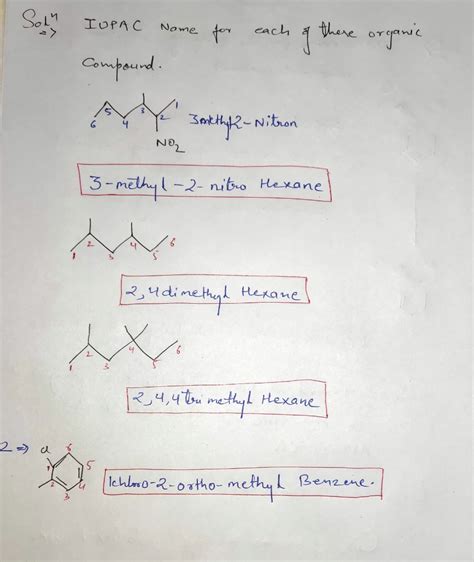 Solⁿ IUPAC Name for each of these organic
=>
Compound.
6 5 4 3 2 1 3methyl-2-Nitron
NO2
3-methyl-2-nitro Hexane
1 2 3 4 5 6
2,4dimethyl Hexane
1 2 3 4 5 6
2,4,4 tri methyl Hexane
2 => cl
1 2 3 4 5 6
1chloro-2-ortho-methyl Benzene.